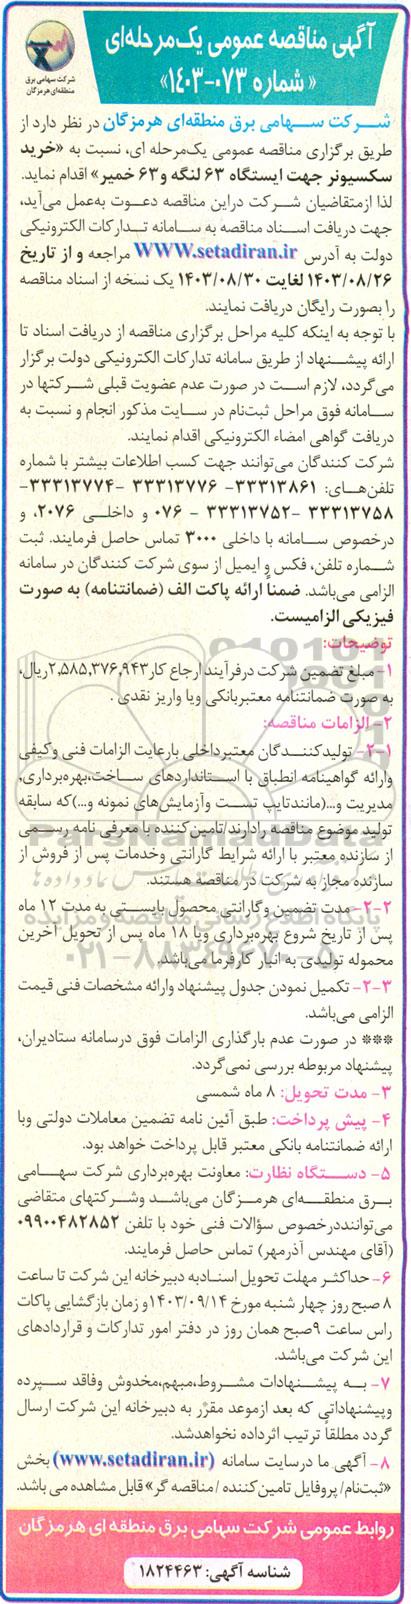 آگهی مناقصه عمومی یک‌مرحله‌ای
« شماره ۰۷۳-۱۴۰۳»
شرکت سهامی برق
منطقه‌ای هرمزگان
شرکت سهامی برق منطقه‌ای هرمزگان در نظر دارد از
طریق برگزاری مناقصه عمومی یک‌مرحله ای، نسبت به «خرید
سکسیونر جهت ایستگاه ۶۳ لنگه و ۶۳ خمیر» اقدام نماید.
لذا ازمتقاضیان شرکت دراین مناقصه دعوت به‌عمل می‌آید،
جهت دریافت اسناد مناقصه به سامانه تدارکات الکترونیکی
دولت به آدرس WWW.setadiran.ir مراجعه و از تاریخ
۱۴۰۳/۰۸/۲۶ لغایت ۱۴۰۳/۰۸/۳۰ یک نسخه از اسناد مناقصه
را بصورت رایگان دریافت نمایند.
با توجه به اینکه کلیه مراحل برگزاری مناقصه از دریافت اسناد تا
ارائه پیشنهاد از طریق سامانه تدارکات الکترونیکی دولت برگزار
می‌گردد، لازم است در صورت عدم عضویت قبلی شرکتها در
سامانه فوق مراحل ثبت‌نام در سایت مذکور انجام و نسبت به
دریافت گواهی امضاء الکترونیکی اقدام نمایند.
شرکت کنندگان می‌توانند جهت کسب اطلاعات بیشتر با شماره
تلفن‌های: ۳۳۳۱۳۸۶۱- ۳۳۳۱۳۷۷۶ -۳۳۳۱۳۷۷۴-
۳۳۳۱۳۷۵۸ -۳۳۳۱۳۷۵۲ - ۰۷۶ و داخلی ۲۰۷۶، و
درخصوص سامانه با داخلی ۳۰۰۰ تماس حاصل فرمایند. ثبت
شماره تلفن، فکس و ایمیل از سوی شرکت کنندگان در سامانه
الزامی می‌باشد. ضمناً ارائه پاکت الف (ضمانتنامه) به صورت
فیزیکی الزامیست.
توضیحات:
۱- مبلغ تضمین شرکت درفرآیند ارجاع کار ۲,۵۸۵,۳۷۶,۹۴۳ریال،
به صورت ضمانتنامه معتبربانکی ویا واریز نقدی .
۲- الزامات مناقصه:
۲-۱- تولیدکنندگان معتبرداخلی بارعایت الزامات فنی وکیفی
وارائه گواهینامه انطباق با استانداردهای ساخت،بهره‌برداری،
مدیریت و...(مانندتایپ تست وآزمایش‌های نمونه و...)که سابقه
تولید موضوع مناقصه رادارند/تامین‌کننده با معرفی نامه رسمی
از سازنده معتبر با ارائه شرایط گارانتی وخدمات پس از فروش از
سازنده مجاز به شرکت در مناقصه هستند.
۲-۲- مدت تضمین وگارانتی محصول بایستی به مدت ۱۲ ماه
پس از تاریخ شروع بهره‌برداری ویا ۱۸ ماه پس از تحویل آخرین
محموله تولیدی به انبار کارفرما می‌باشد.
۲-۳- تکمیل نمودن جدول پیشنهاد وارائه مشخصات فنی قیمت
الزامی می‌باشد.
*** در صورت عدم بارگذاری الزامات فوق درسامانه ستادیران،
پیشنهاد مربوطه بررسی نمی‌گردد.
۳- مدت تحویل: ۸ ماه شمسی
۴- پیش پرداخت: طبق آئین نامه تضمین معاملات دولتی وبا
ارائه ضمانتنامه بانکی معتبر قابل پرداخت خواهد بود.
۵- دستگاه نظارت: معاونت بهره‌برداری شرکت سهامی
برق منطقه‌ای هرمزگان می‌باشد وشرکتهای متقاضی
می‌تواننددرخصوص سؤالات فنی خود با تلفن ۰۹۹۰۰۴۸۲۸۵۲
(آقای مهندس آذرمهر) تماس حاصل فرمایند.
۶- حداکثر مهلت تحویل اسنادبه دبیرخانه این شرکت تا ساعت
۸ صبح روز چهار شنبه مورخ ۱۴۰۳/۰۹/۱۴و زمان بازگشایی پاکات
راس ساعت ۹صبح همان روز در دفتر امور تدارکات و قراردادهای
این شرکت می‌باشد.
۷- به پیشنهادات مشروط،مبهم،مخدوش وفاقد سپرده
وپیشنهاداتی که بعد ازموعد مقرّر به دبیرخانه این شرکت ارسال
گردد مطلقاً ترتیب اثرداده نخواهدشد.
۸- آگهی ما درسایت سامانه (www.setadiran.ir) بخش
«ثبت‌نام/ پروفایل تامین‌کننده / مناقصه گر» قابل مشاهده می باشد.
روابط عمومی شرکت سهامی برق منطقه ای هرمزگان
شناسه آگهی: ۱۸۲۴۴۶۳
ParsNamadData
پایگاه اطلاع رسانی مناقصه و مزایده
۰۲۱-۸۸۳۴۹۶۷۰-۵